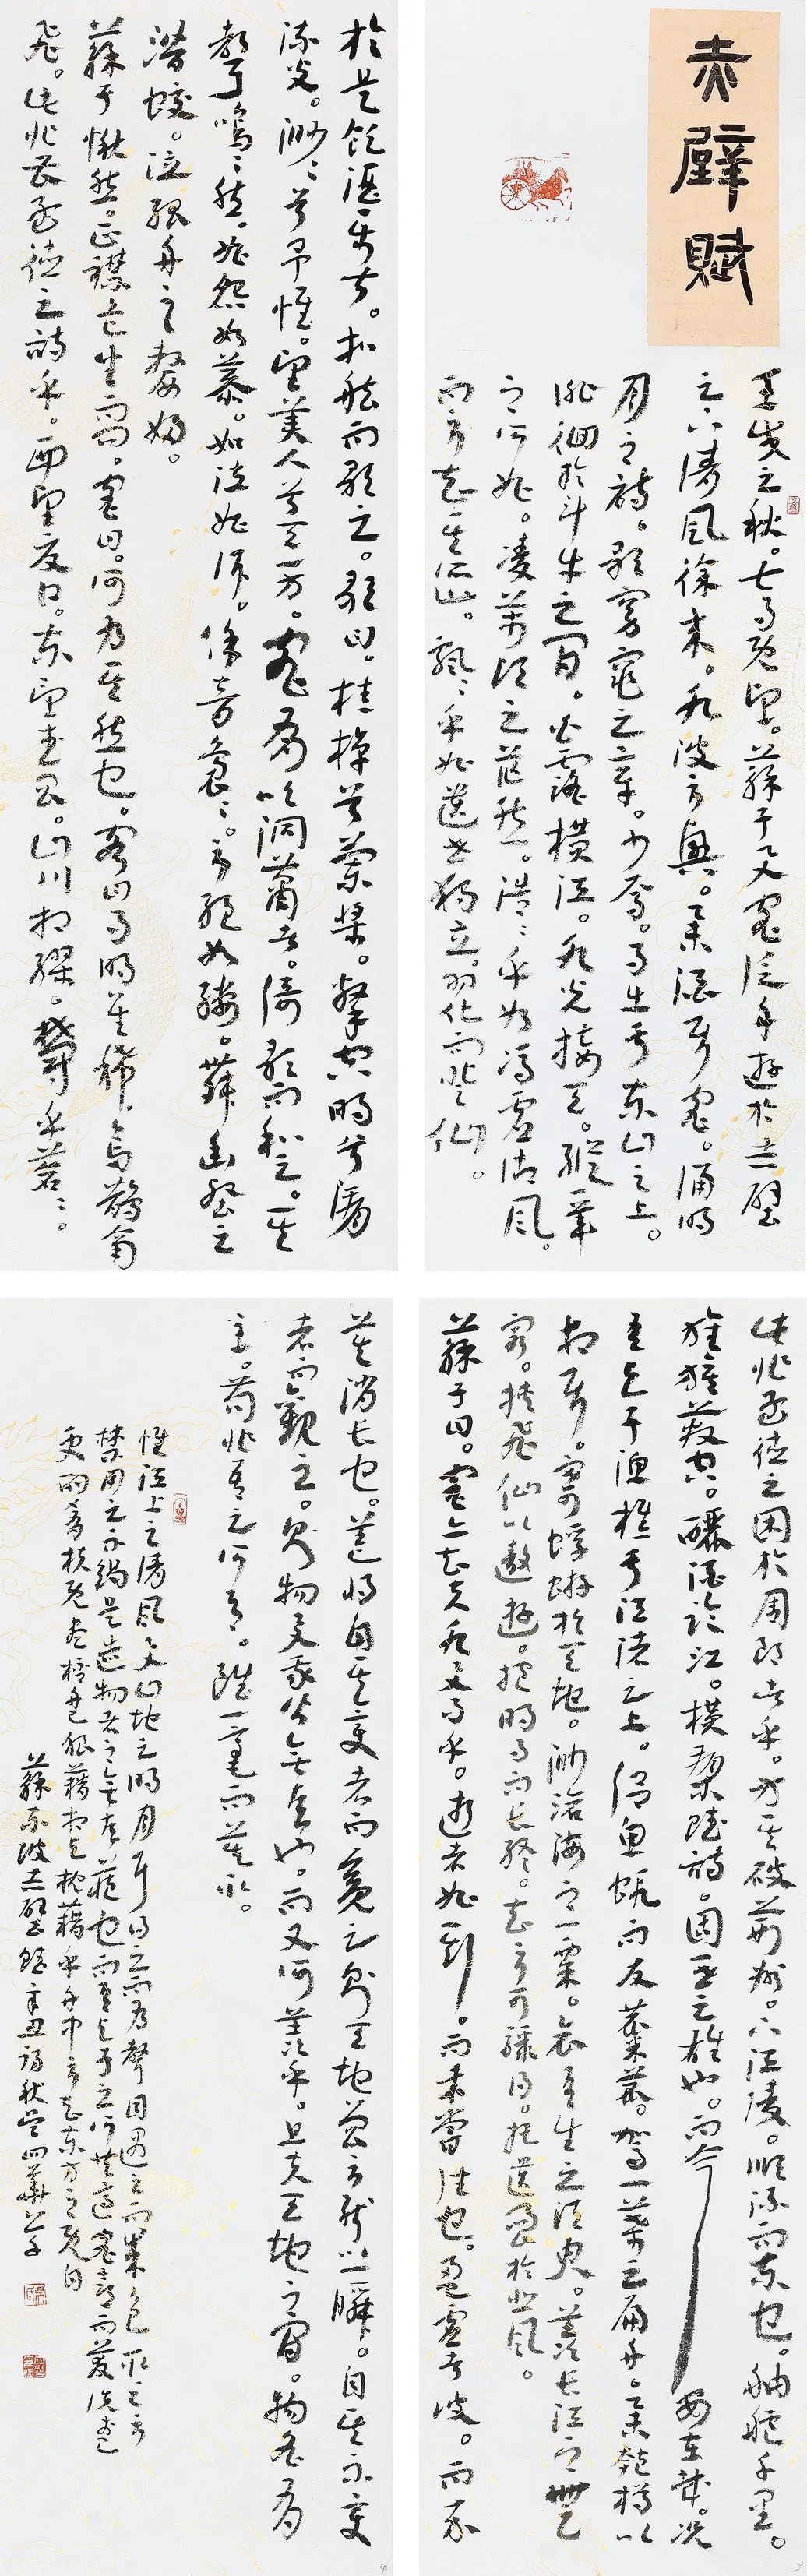 赤壁賦
壬戌之秋。七月既望。蘇子與客泛舟遊於赤壁
之下清風徐來。水波不興。舉酒屬客。誦明
月之詩。歌窈窕之章。少焉。月出於東山之上。
徘徊於斗牛之間。白露橫江。水光接天。縱一葦
之所如。凌萬頃之茫然。浩浩乎如馮虛御風。
而不知其所止。飄飄乎如遺世獨立。羽化而登仙。
於是飲酒樂甚。扣舷而歌之。歌曰。桂棹兮蘭槳。擊空明兮溯
流光。渺渺兮予懷。望美人兮天一方。客有吹洞簫者。倚歌而和之。其
聲嗚嗚然。如怨如慕。如泣如訴。餘音裊裊。不絕如縷。舞幽壑之
潛蛟。泣孤舟之嫠婦。
蘇子愀然。正襟危坐而問。客曰。何為其然也。客曰月明星稀。烏鵲南
飛。此非曹孟德之詩乎。西望夏口。東望武昌。山川相繆。鬱乎蒼蒼。
此非孟德之困於周郎者乎。方其破荊州。下江陵。順流而東也。舳艫千里。
旌旗蔽空。釃酒臨江。橫槊賦詩。固一世之雄也。而今安在哉。況
吾與子漁樵於江渚之上。侶魚蝦而友麋鹿。駕一葉之扁舟。舉匏樽以
相屬。寄蜉蝣於天地。渺滄海之一粟。哀吾生之須臾。羨長江之無
窮。挾飛仙以遨遊。抱明月而長終。知不可驟得。托遺響於悲風。
蘇子曰。客亦知夫水與月乎。逝者如斯。而未嘗往也。盈虛者彼。而卒
莫消長也。蓋將自其變者而觀之則天地曾不能以一瞬。自其不變
者而觀之。則物與我皆無盡也。而又何羨乎。且夫天地之間。物各有
主。苟非吾之所有。雖一毫而莫取。
惟江上之清風與山地之明月耳得之而為聲目遇之而成色取之不
禁用之不竭是造物者之無盡藏也而吾與子之所共適客喜而笑洗盞
更酌肴核既盡杯盤狼藉相與枕藉乎舟中不知東方之既白
蘇東坡赤壁賦辛丑初秋